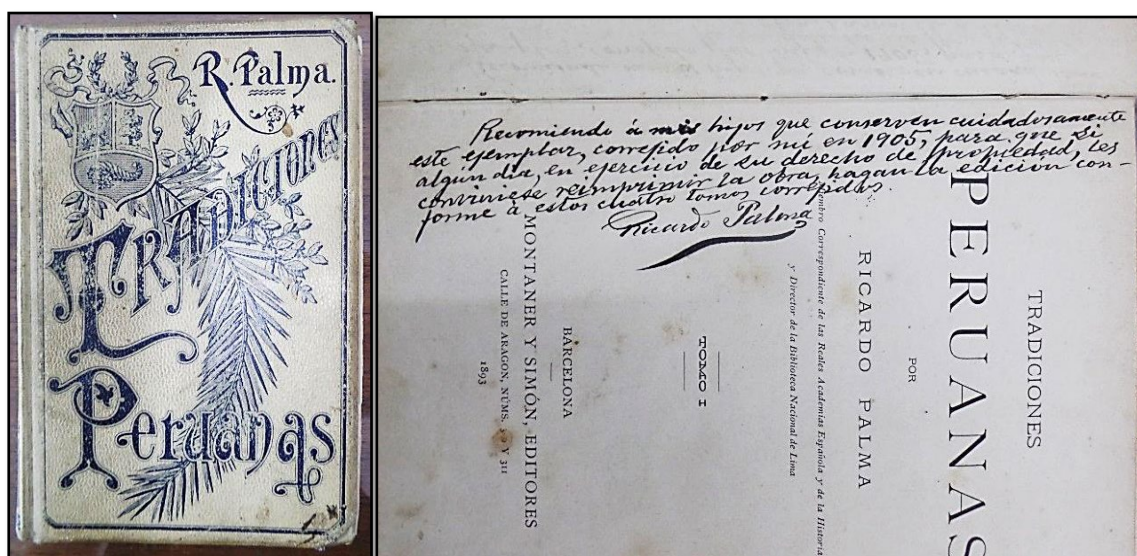 R. Palma.
TRADICIONES
Peruanas
Recomiendo á mis hijos que conserven cuidadosamente
este ejemplar, correjido por mí en 1905, para que si
algun dia, en ejercicio de su derecho de propiedad, les
conviniese reimprimir la obra, hagan la edicion con-
forme á estos cuatro tomos correjidos.
Ricardo Palma
TRADICIONES
PERUANAS
POR
RICARDO PALMA
Correspondiente de las Reales Academias Española y de la Historia
y Director de la Biblioteca Nacional de Lima
TOMO I
BARCELONA
MONTANER Y SIMÓN, EDITORES
CALLE DE ARAGON, NÚMS. Y 311
1893